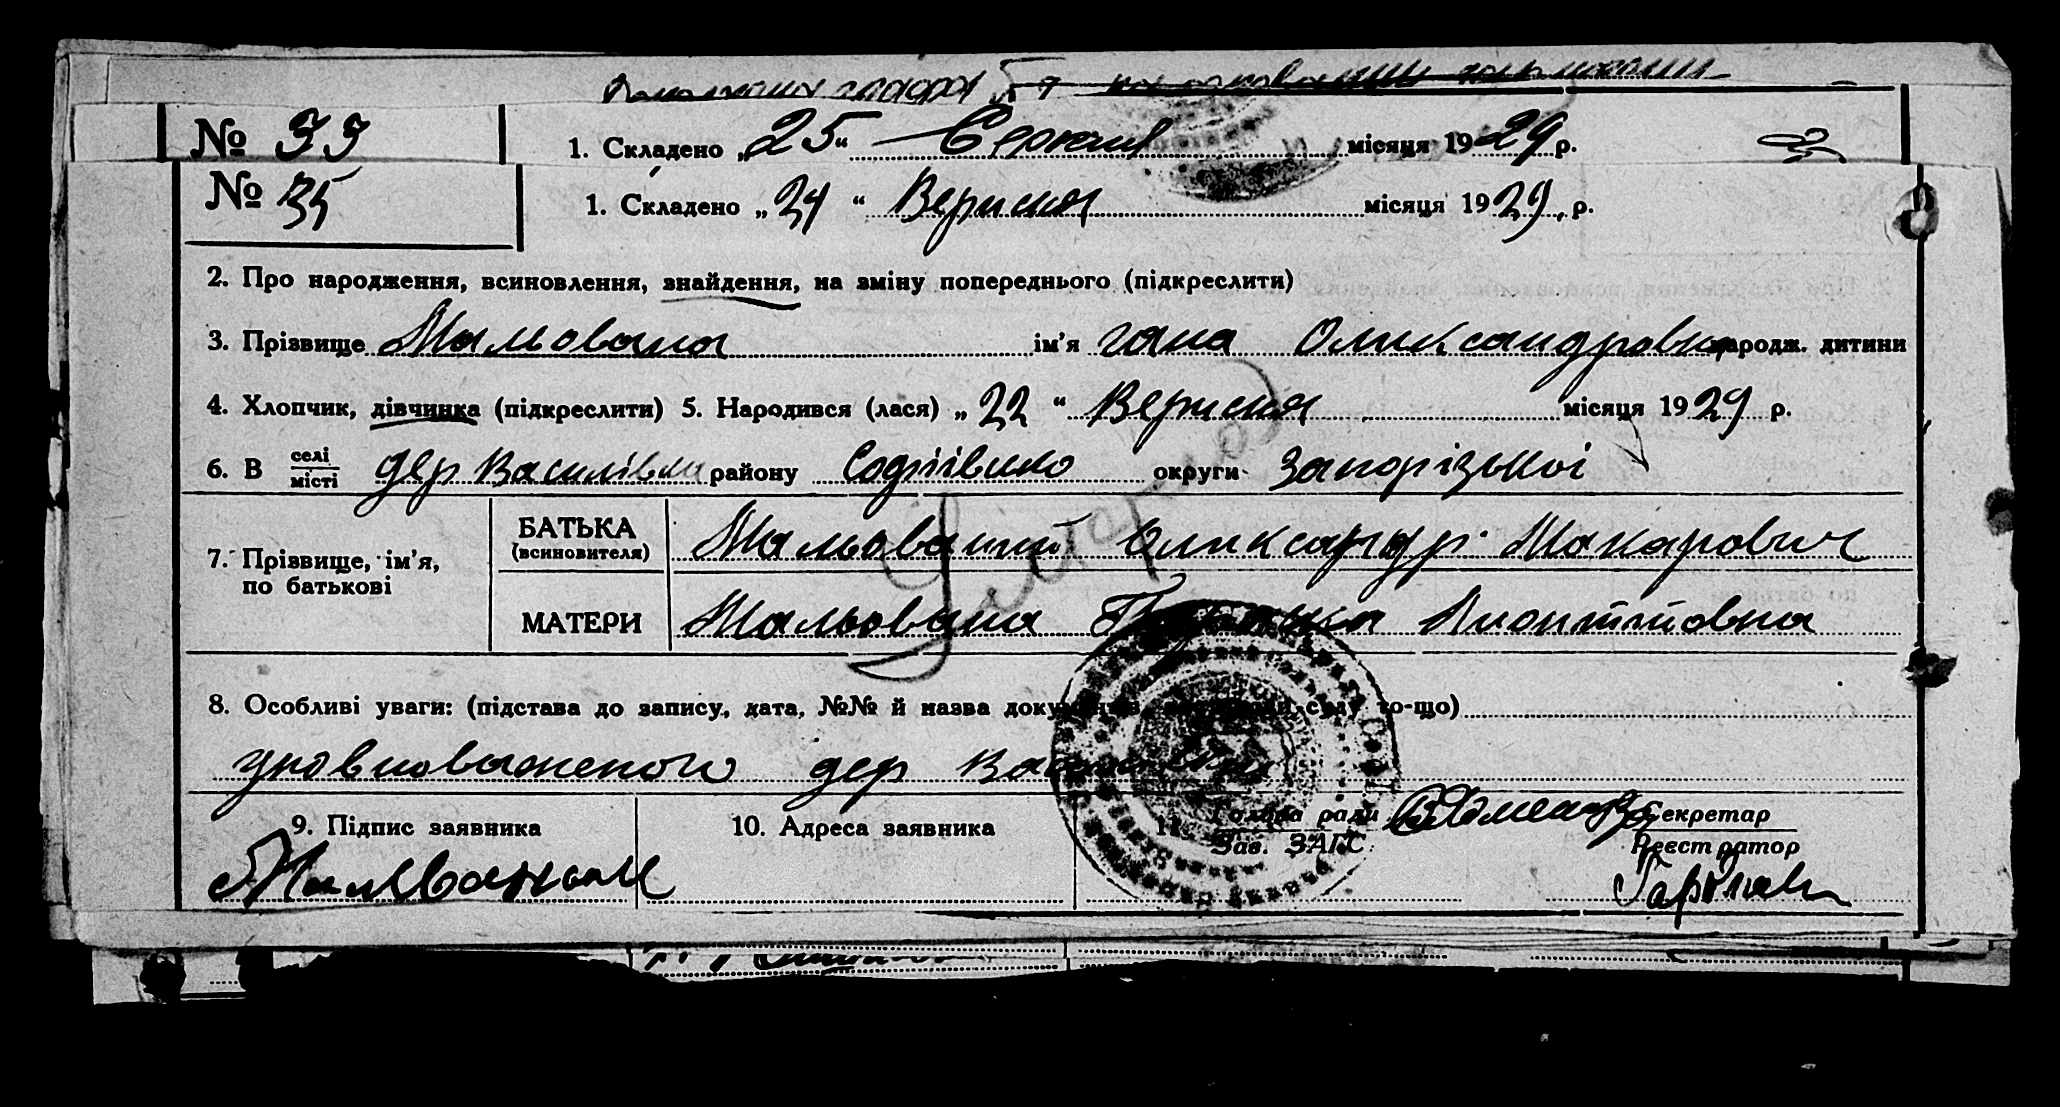 № 33
1. Складено „25“ Серпня місяця 1929 р.
№ 35
1. Складено „24“ Вернсня місяця 1929 р.
2. Про народження, всиновлення, знайдення, на зміну попереднього (підкреслити)
3. Прізвище Мальована ім'я гана Олександровна народж. дитини
4. Хлопчик, дівчинка (підкреслити) 5. Народився (лася) „22“ Вернсня місяця 1929 р.
6. В селі/місті дер Василівка району Софіївско округи Запорізької
7. Прізвище, ім'я, по батькові
БАТЬКА (всиновителя) Мальований Олександр Макарович
МАТЕРИ Мальована Леонтіовна
8. Особливі уваги: (підстава до запису, дата, №№ й назва документів, суду то-що)
уповноваженого дер
9. Підпис заявника
10. Адреса заявника
11. Голова ради
Зав. ЗАГС
Секретар
Реєстратор